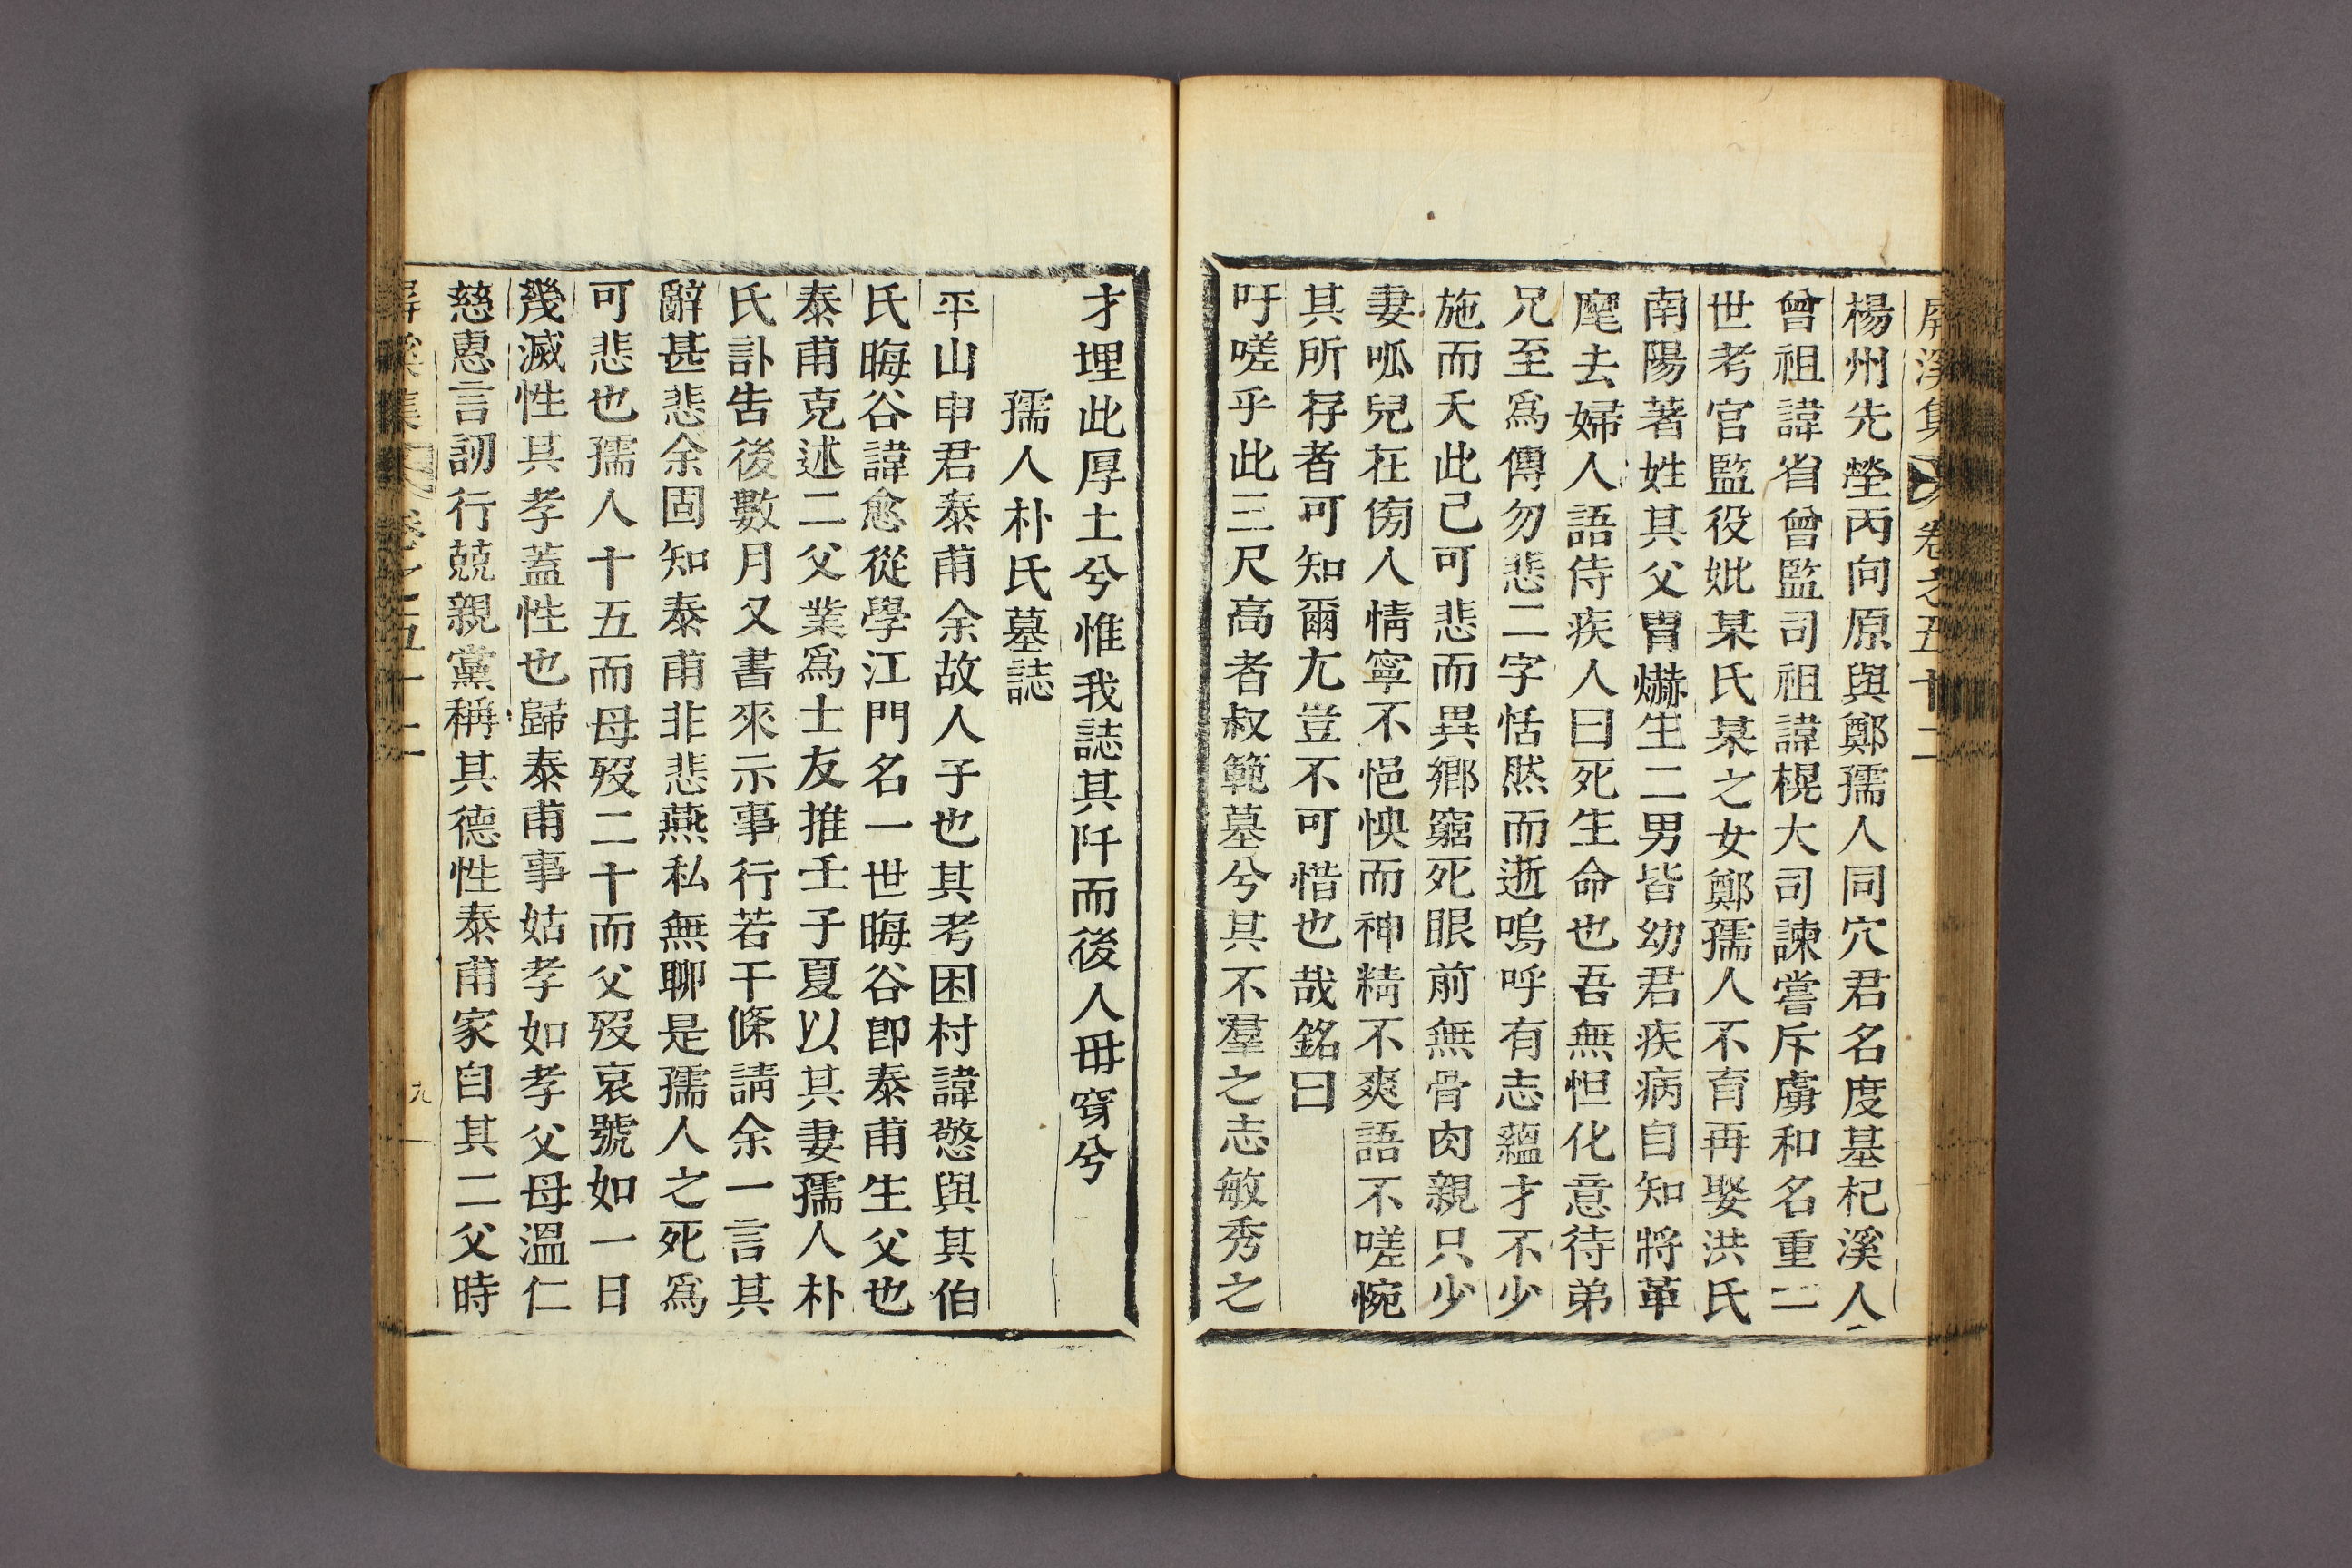 屛溪集 卷之五十二
楊州先塋丙向原與鄭孺人同穴君名度基杞溪人
曾祖諱省曾監司祖諱榥大司諫嘗斥虜和名重一
世考官監役妣某氏某之女鄭孺人不育再娶洪氏
南陽著姓其父胃爀生二男皆幼君疾病自知將革
麾去婦人語侍疾人曰死生命也吾無怛化意待弟
兄至爲傳勿悲二字恬然而逝嗚呼有志蘊才不少
施而夭此已可悲而異鄕窮死眼前無骨肉親只少
妻呱兒在傍人情寧不悒怏而神精不爽語不嗟惋
其所存者可知爾尤豈不可惜也哉銘曰
吁嗟乎此三尺高者叔範墓兮其不羣之志敏秀之
才埋此厚土兮惟我誌其阡而後人毋穿兮
孺人朴氏墓誌
平山申君泰甫余故人子也其考困村諱慜與其伯
氏晦谷諱愈從學江門名一世晦谷卽泰甫生父也
泰甫克述二父業爲士友推壬子夏以其妻孺人朴
氏訃告後數月又書來示事行若干條請余一言其
辭甚悲余固知泰甫非悲燕私無聊是孺人之死爲
可悲也孺人十五而母歿二十而父歿哀號如一日
幾滅性其孝蓋性也歸泰甫事姑孝如孝父母溫仁
慈惠言訒行兢親黨稱其德性泰甫家自其二父時
屛溪集 卷之五十二
九